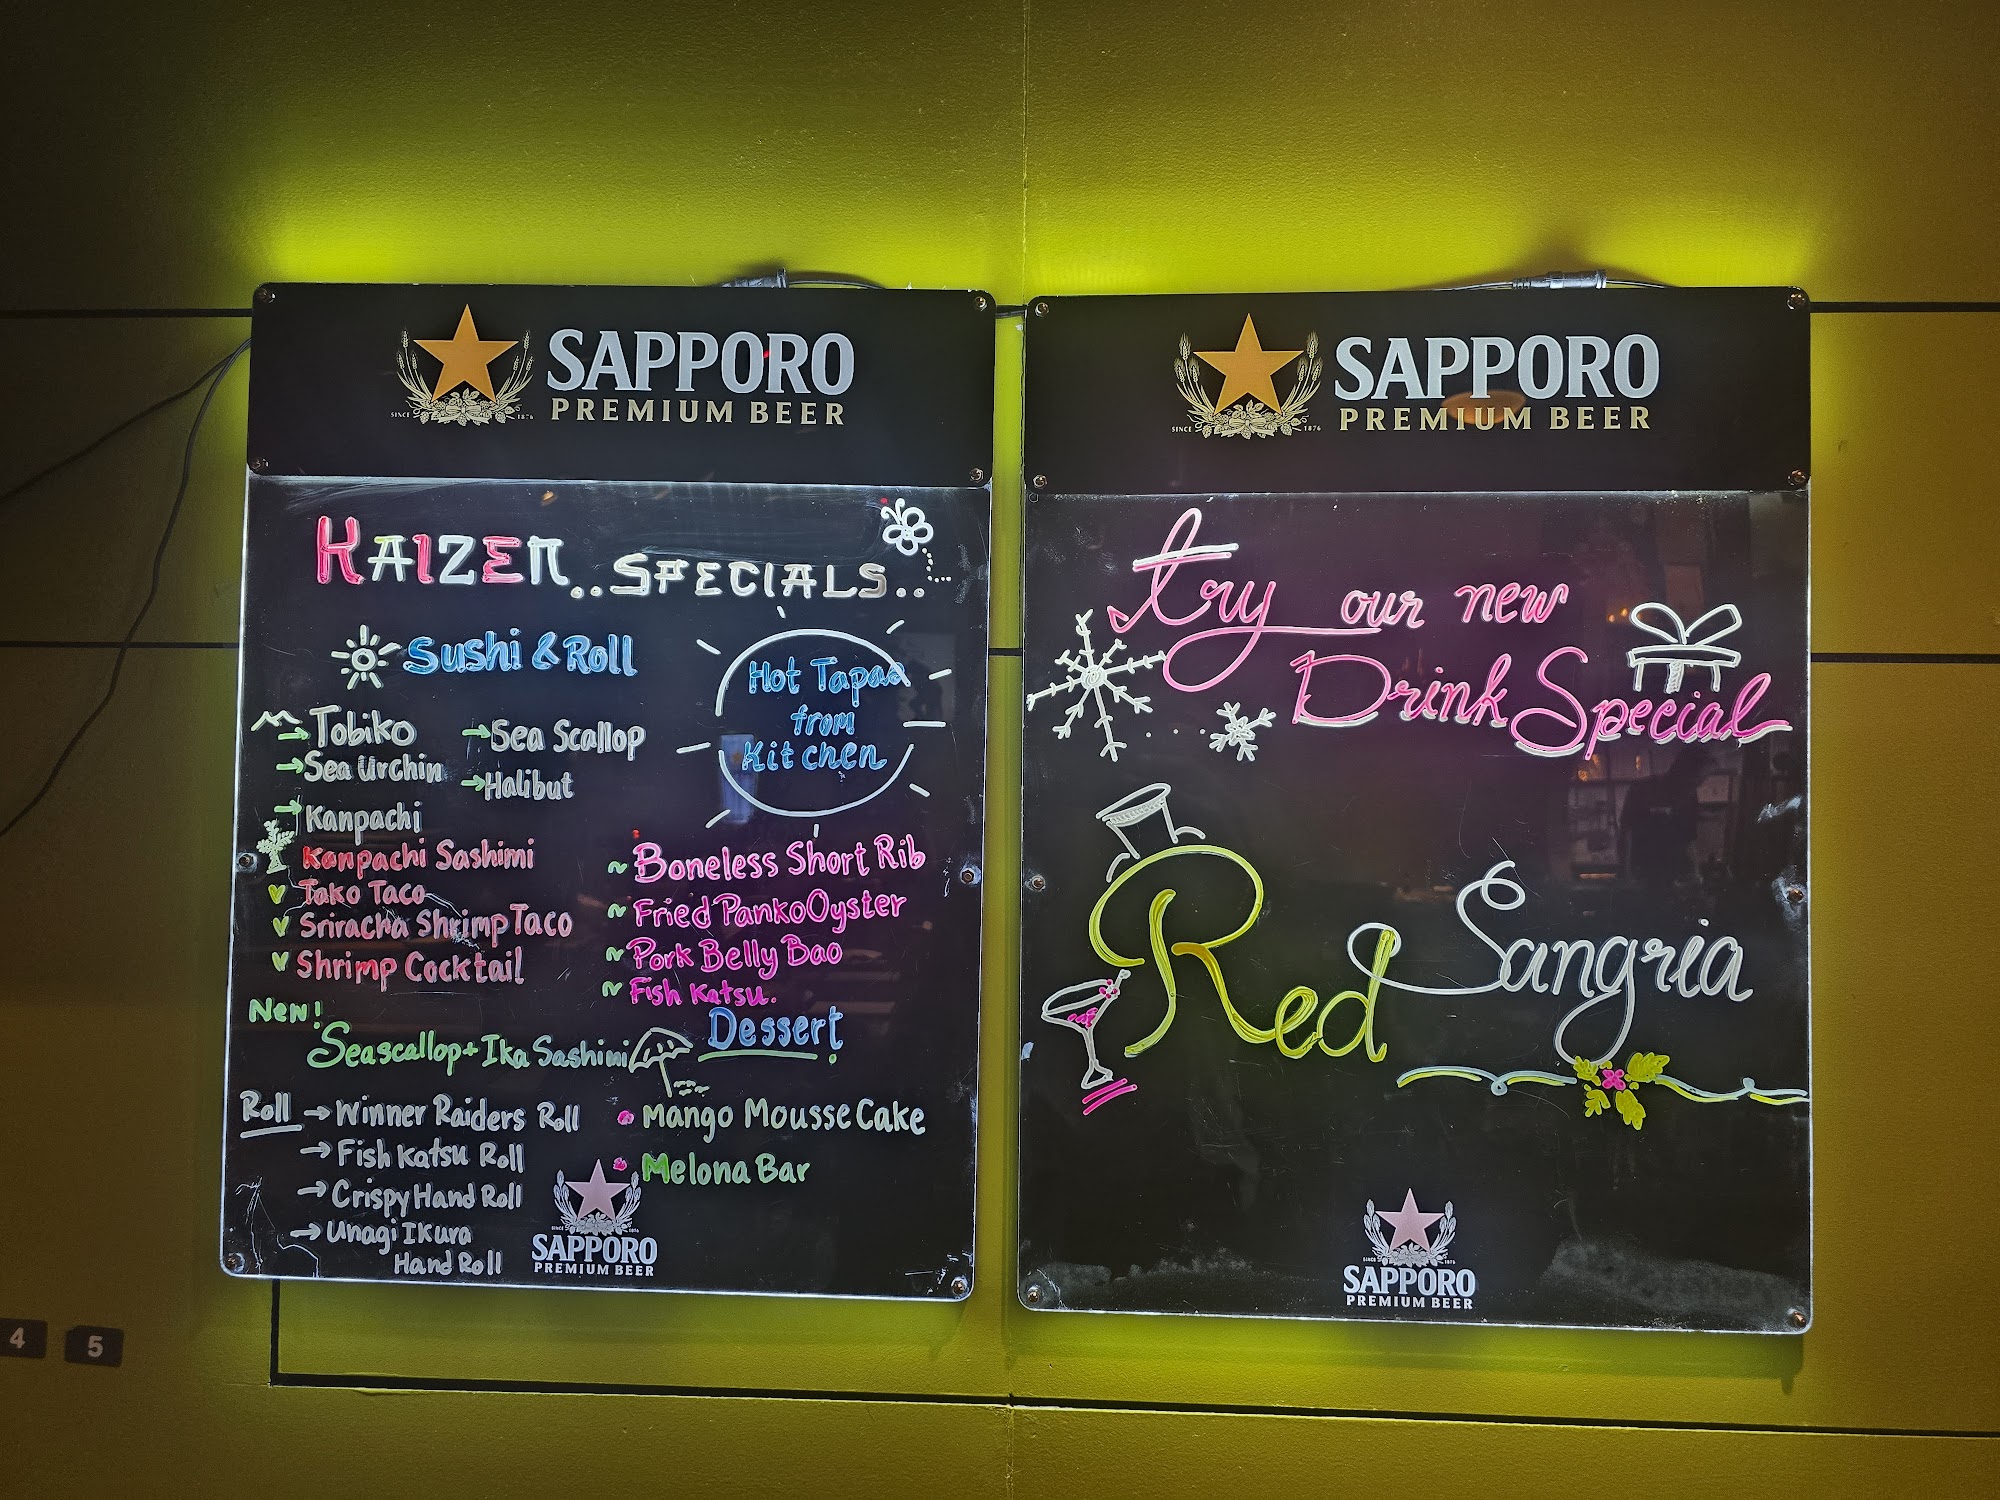 SAPPORO
PREMIUM BEER
SINCE 1876
KAIZEN..SPECIALS..
Sushi & Roll
→Tobiko
→Sea Urchin
→Kanpachi
→Sea Scallop
→Halibut
Kanpachi Sashimi
Tako Taco
Sriracha Shrimp Taco
Shrimp Cocktail
New!
Seascallop+Ika Sashimi
Roll →Winner Raiders Roll
→Fish Katsu Roll
→Crispy Hand Roll
→Unagi Ikura
Hand Roll
Hot Tapas
from
Kitchen
~Boneless Short Rib
~Fried Panko Oyster
~Pork Belly Bao
~Fish Katsu.
Dessert
Mango Mousse Cake
Melona Bar
SINCE 1876
SAPPORO
PREMIUM BEER
SAPPORO
PREMIUM BEER
SINCE 1876
Try our new
Drink Special
Red Sangria
SINCE 1876
SAPPORO
PREMIUM BEER
4 5